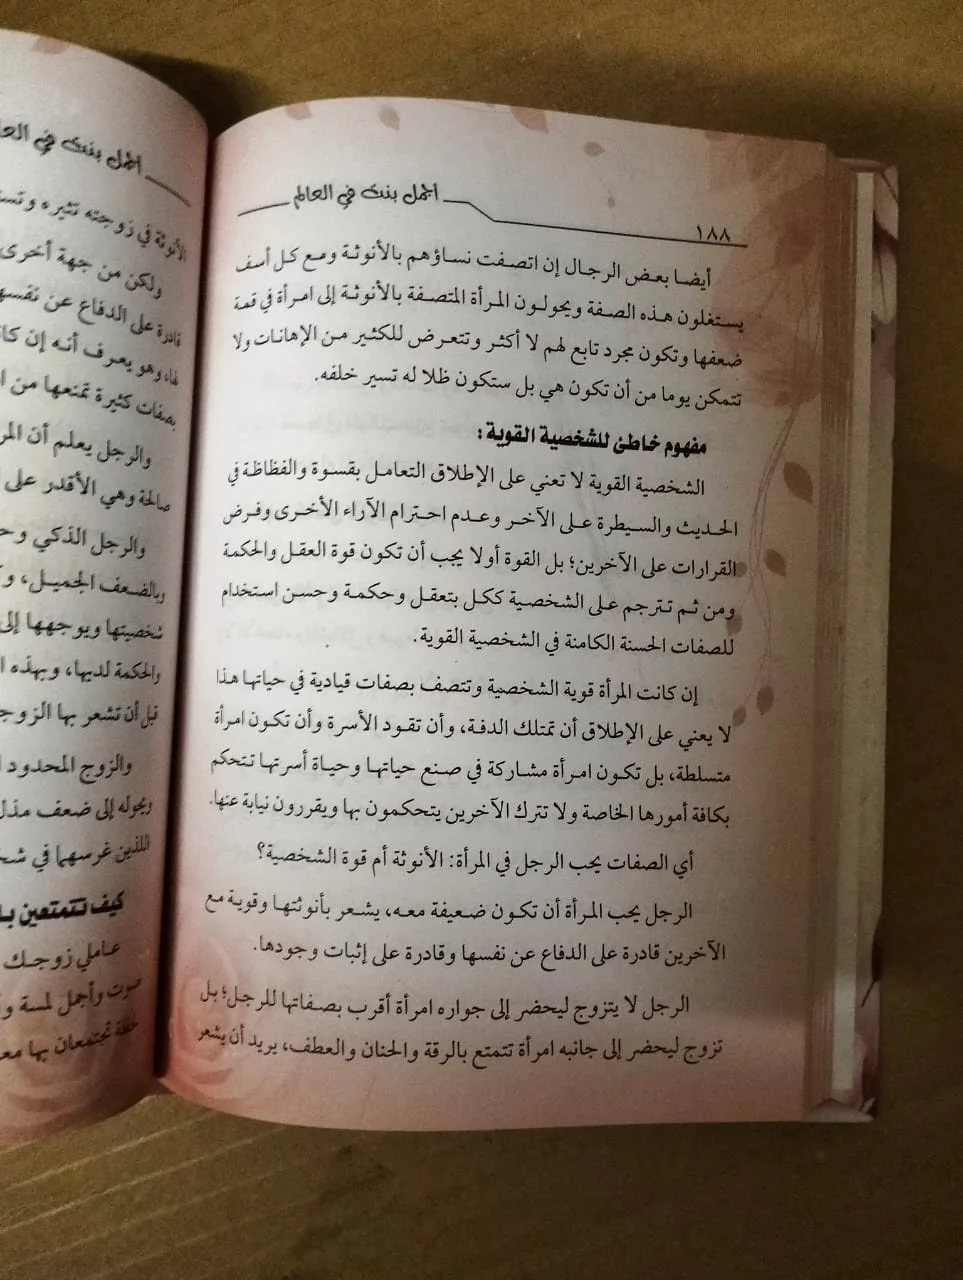 أجمل بنت في العالم
١٨٨
أيضا بعض الرجال إن اتصفت نساؤهم بالأنوثة ومع كل أسف
يستغلون هذه الصفة ويحولون المرأة المتصفة بالأنوثة إلى امرأة في قمة
ضعفها وتكون مجرد تابع لهم لا أكثر وتتعرض للكثير من الإهانات ولا
تتمكن يوما من أن تكون هي بل ستكون ظلا له تسير خلفه.
مفهوم خاطئ للشخصية القوية:
الشخصية القوية لا تعني على الإطلاق التعامل بقسوة والفظاظة في
الحديث والسيطرة على الآخر وعدم احترام الآراء الأخرى وفرض
القرارات على الآخرين؛ بل القوة أولا يجب أن تكون قوة العقل والحكمة
ومن ثم تترجم على الشخصية ككل بتعقل وحكمة وحسن استخدام
للصفات الحسنة الكامنة في الشخصية القوية.
إن كانت المرأة قوية الشخصية وتتصف بصفات قيادية في حياتها هذا
لا يعني على الإطلاق أن تمتلك الدفة، وأن تقود الأسرة وأن تكون امرأة
متسلطة، بل تكون امرأة مشاركة في صنع حياتها وحياة أسرتها تتحكم
بكافة أمورها الخاصة ولا تترك الآخرين يتحكمون بها ويقررون نيابة عنها.
أي الصفات يحب الرجل في المرأة: الأنوثة أم قوة الشخصية؟
الرجل يحب المرأة أن تكون ضعيفة معه، يشعر بأنوثتها وقوية مع
الآخرين قادرة على الدفاع عن نفسها وقادرة على إثبات وجودها.
الرجل لا يتزوج ليحضر إلى جواره امرأة أقرب بصفاتها للرجل؛ بل
تزوج ليحضر إلى جانبه امرأة تتمتع بالرقة والحنان والعطف، يريد أن يشعر
أجمل بنت في
الأنوثة في زوجته تثيره
ولكن من جهة أخرى
قادرة على الدفاع عن
لها، وهو يعرف أنه إن
بصفات كثيرة تمنعها من
والرجل يعلم أن
صالحة وهي الأقدر على
والرجل الذكي
وبالضعف الجميل،
شخصيتها ويوجهها إلى
والحكمة لديها، وبهذه
قبل أن تشعر بها
والزوج المحدود
ويحوله إلى ضعف
اللذين غرسهما في
كيف تتمتعين
عاملي زوجك
صوت وأجمل لمسة
تجتمعان بها